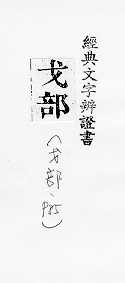 經典文字辨證書
戈部
(戈部、P25)